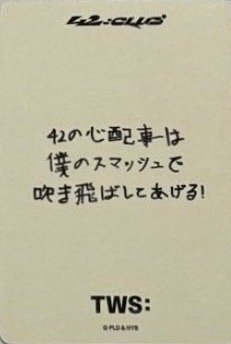 42:CLUB
42の心配事は
僕のスマッシュで
吹き飛ばしてあげる!
TWS:
© PLD & HYB